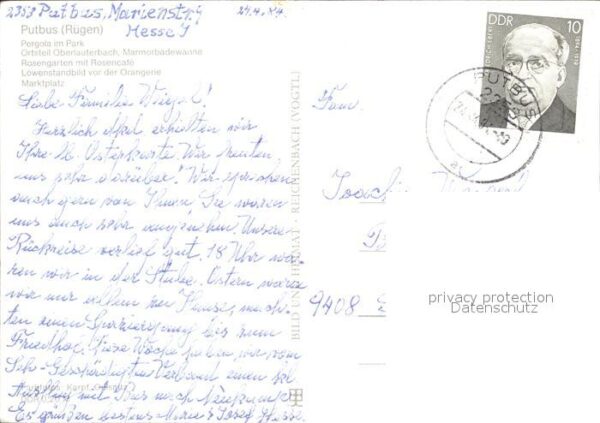 2353 Putbus, Marienstr. 9
24.4.84
Hesse J
Putbus (Rügen)
Pergola im Park
Ortsteil Oberlauterbach, Marmorbadewanne
Rosengarten mit Rosencafé
Löwenstandbild vor der Orangerie
Marktplatz
Liebe Familie
Herzlich Dank erhielten wir
Ihre lb. Osterkarte. Wir freuten
uns sehr darüber! Wir sprechen
auch gern von Ihnen. Sie waren
uns auch sehr angenehm. Unsere
Rückreise verlief gut. 18 Uhr wa-
ren wir in der Stube. Ostern waren
wir nur allein zu Hause, mach-
ten einen Spaziergang bis zum
Friedhof. Diese Woche haben wir vom
Seh-Geschädigten Verband einen
Ausflug mit Bus nach
Es grüßen bestens Marie & Josef Hesse
BILD UND HEIMAT · REICHENBACH (VOGTL)
Fam.
Joachim
9408
DDR
10
PUTBUS
privacy protection
Datenschutz